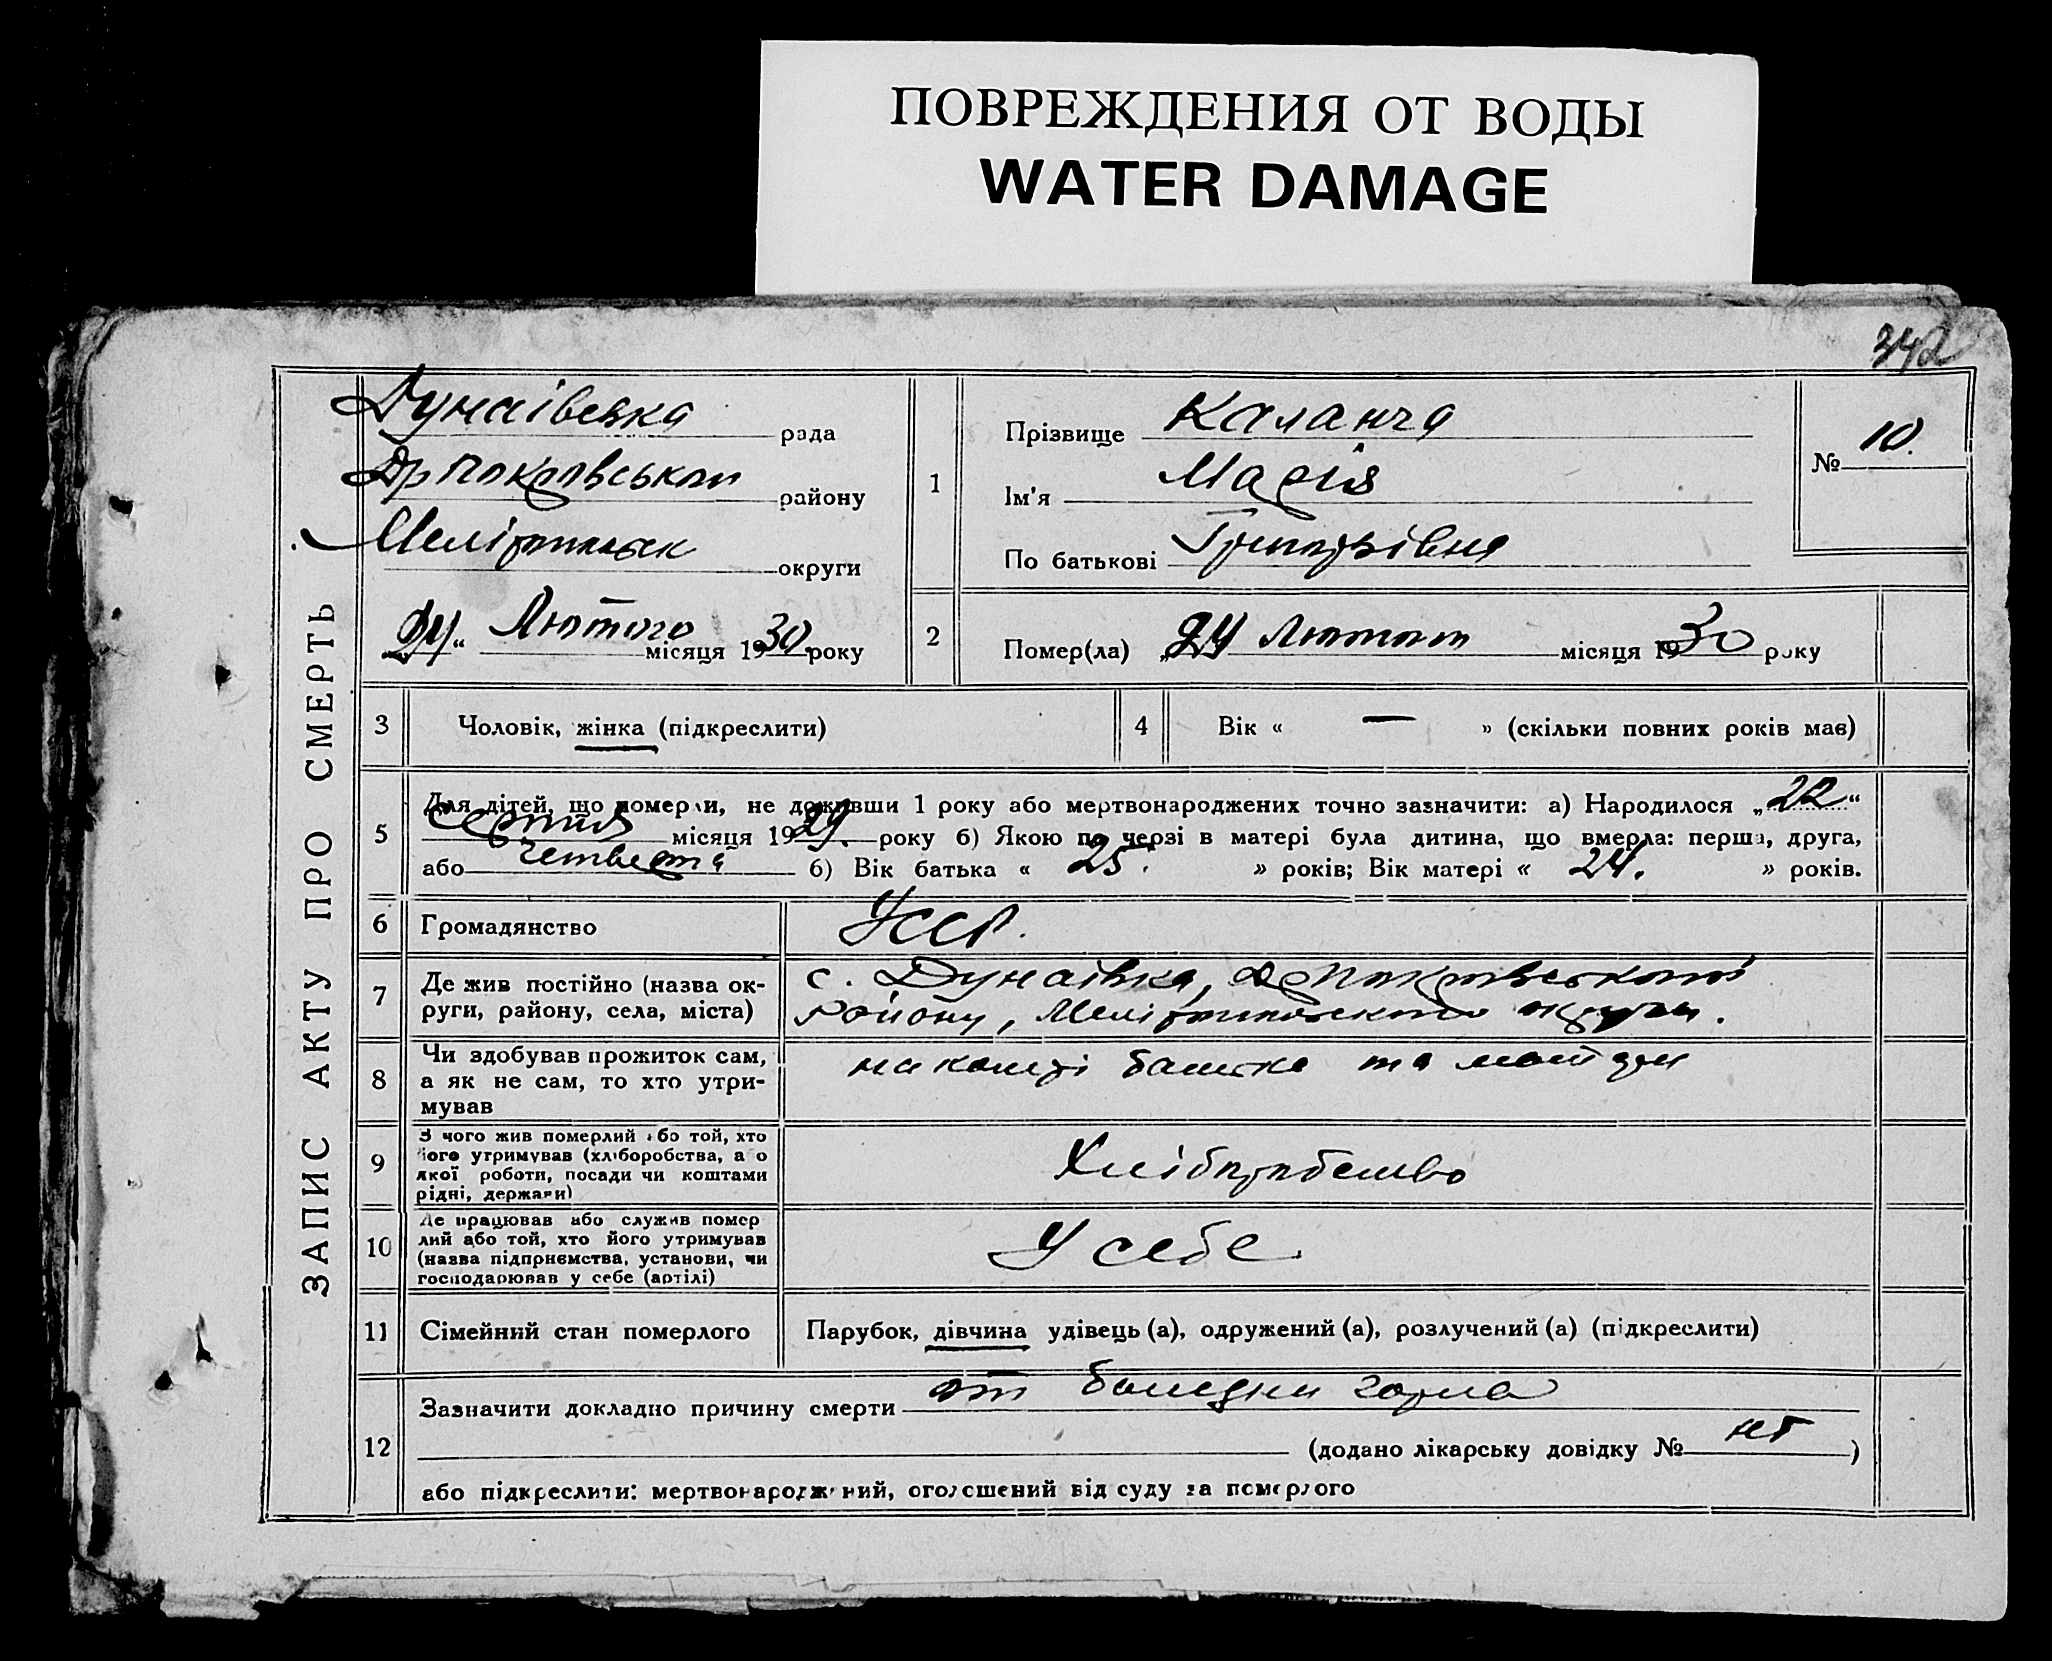 ПОВРЕЖДЕНИЯ ОТ ВОДЫ
WATER DAMAGE
342
ЗАПИС АКТУ ПРО СМЕРТЬ
Дунаівська рада
района
Мелітопільск округи
24 Лютого місяця 1930 року
1
Прізвище Каланча
Ім'я Марія
По батькові Григорьівна
№ 10.
2 Помер(ла) „24 Лютого місяця 1930 року
3 Чоловік, жінка (підкреслити)
4 Вік « — » (скільки повних років має)
5 Для дітей, що померли, не доживши 1 року або мертвонароджених точно зазначити: а) Народилося „22“
Серпня місяця 1929. року б) Якою по черзі в матері була дитина, що вмерла: перша, друга,
або четверта б) Вік батька « 25. » років; Вік матері « 24. » років.
6 Громадянство УССР.
7 Де жив постійно (назва ок-
руги, району, села, міста)
с. Дунаівка,
району, Мелітопільского округи.
8 Чи здобував прожиток сам,
а як не сам, то хто утри-
мував
на кошті батька та матери
9 З чого жив померлий або той, хто
його утримував (хліборобства, або
якої роботи, посади чи коштами
рідні, держави)
Хліборобство
10 Де працював або служив помер
лий або той, хто його утримував
(назва підприємства, установи, чи
господарював у себе (артілі)
У себе
11 Сімейний стан померлого Парубок, дівчина удівець (а), одружений (а), розлучений (а) (підкреслити)
12 Зазначити докладно причину смерти от болезни горла
(додано лікарську довідку № нет)
або підкреслити: мертвонароджений, оголошений від суду за померлого